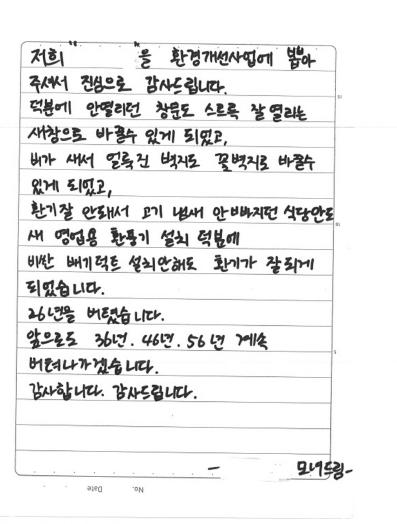 저희 " "을 환경개선사업에 뽑아
주셔서 진심으로 감사드립니다.
덕분에 안열리던 창문도 스르륵 잘 열리는
새창으로 바꿀수 있게 되었고,
비가 새서 얼룩진 벽지도 꽃벽지로 바꿀수
있게 되었고,
환기잘 안돼서 고기 냄새 안빠지던 식당안도
새 영업용 환풍기 설치 덕분에
비싼 배기덕트 설치안해도 환기가 잘되게
되었습니다.
26년을 버텼습니다.
앞으로도 36년. 46년. 56년 계속
버텨나가겠습니다.
감사합니다. 감사드립니다.
- 모녀드림-
No. Date